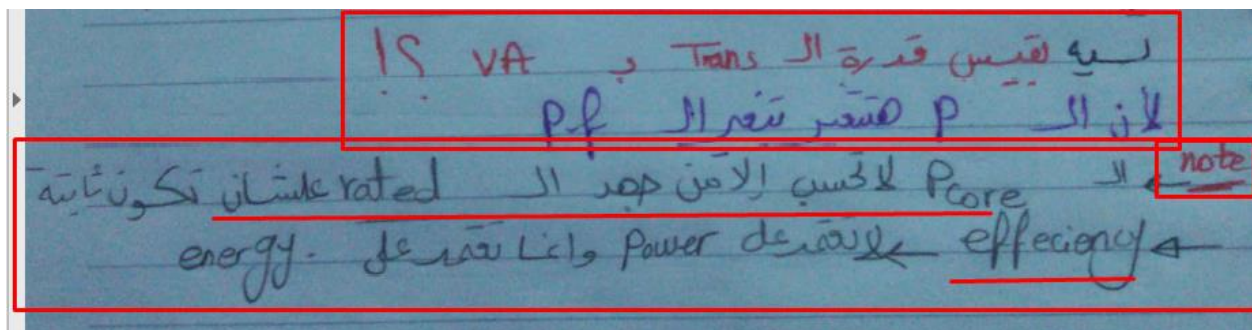 ليه نقيس قدرة الـ Trans بـ VA ؟!
لأن الـ P هتتغير بتغير الـ P.f
note الـ Pcore لا تحسب إلا من جهد الـ rated علشان تكون ثابتة
effeciency لا تعتمد على Power وانما تعتمد على energy.